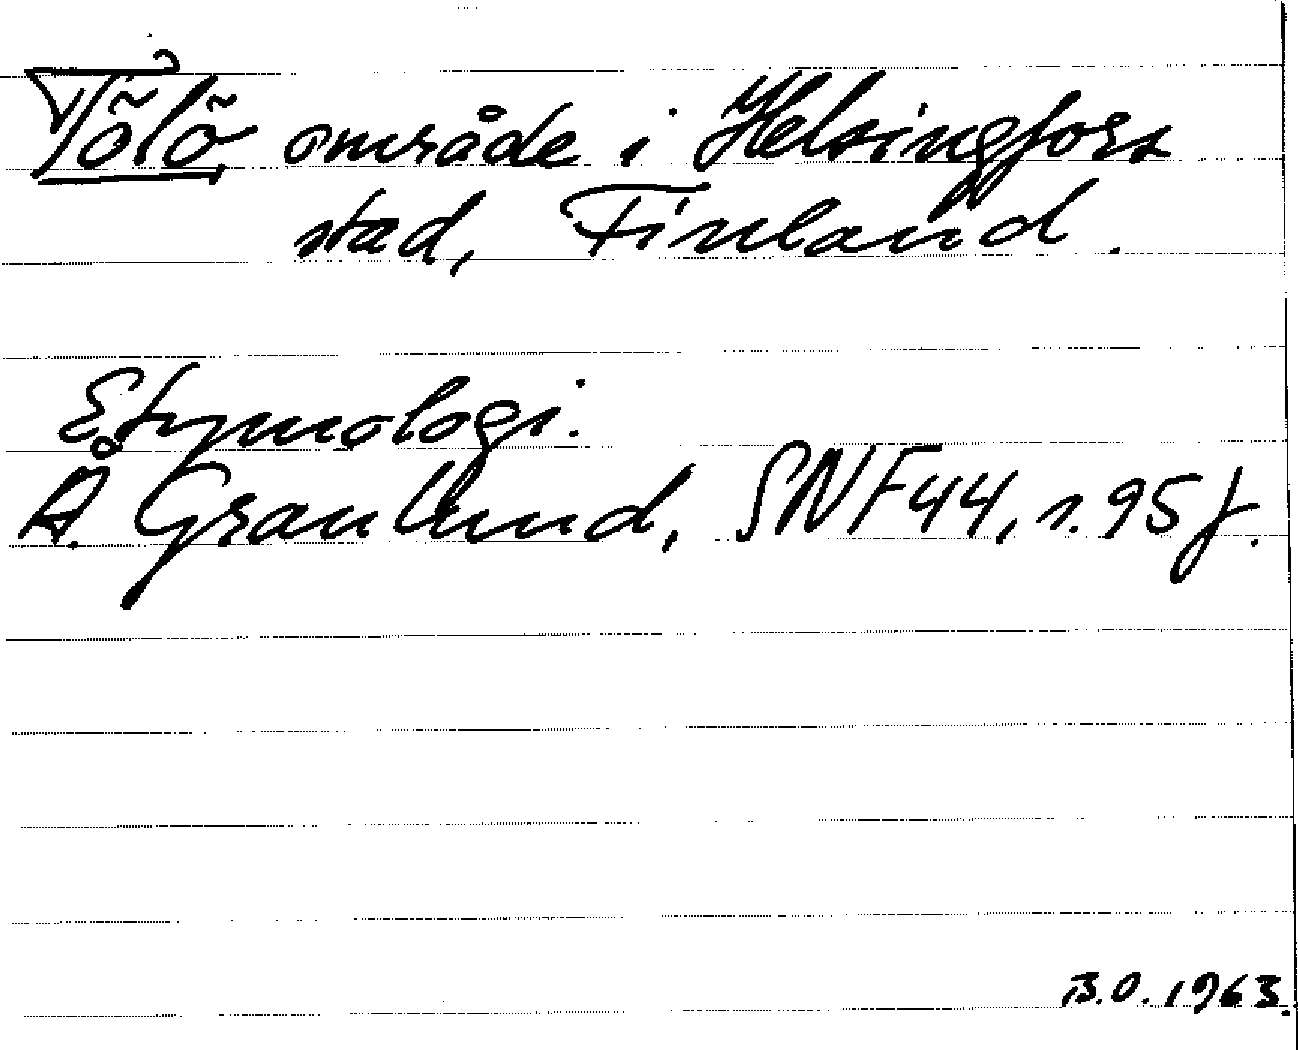 Tölö, område i Helsingfors
stad, Finland.
Etymologi.
Å. Granlund, SNF 44, s. 95 f.
B.O. 1963.